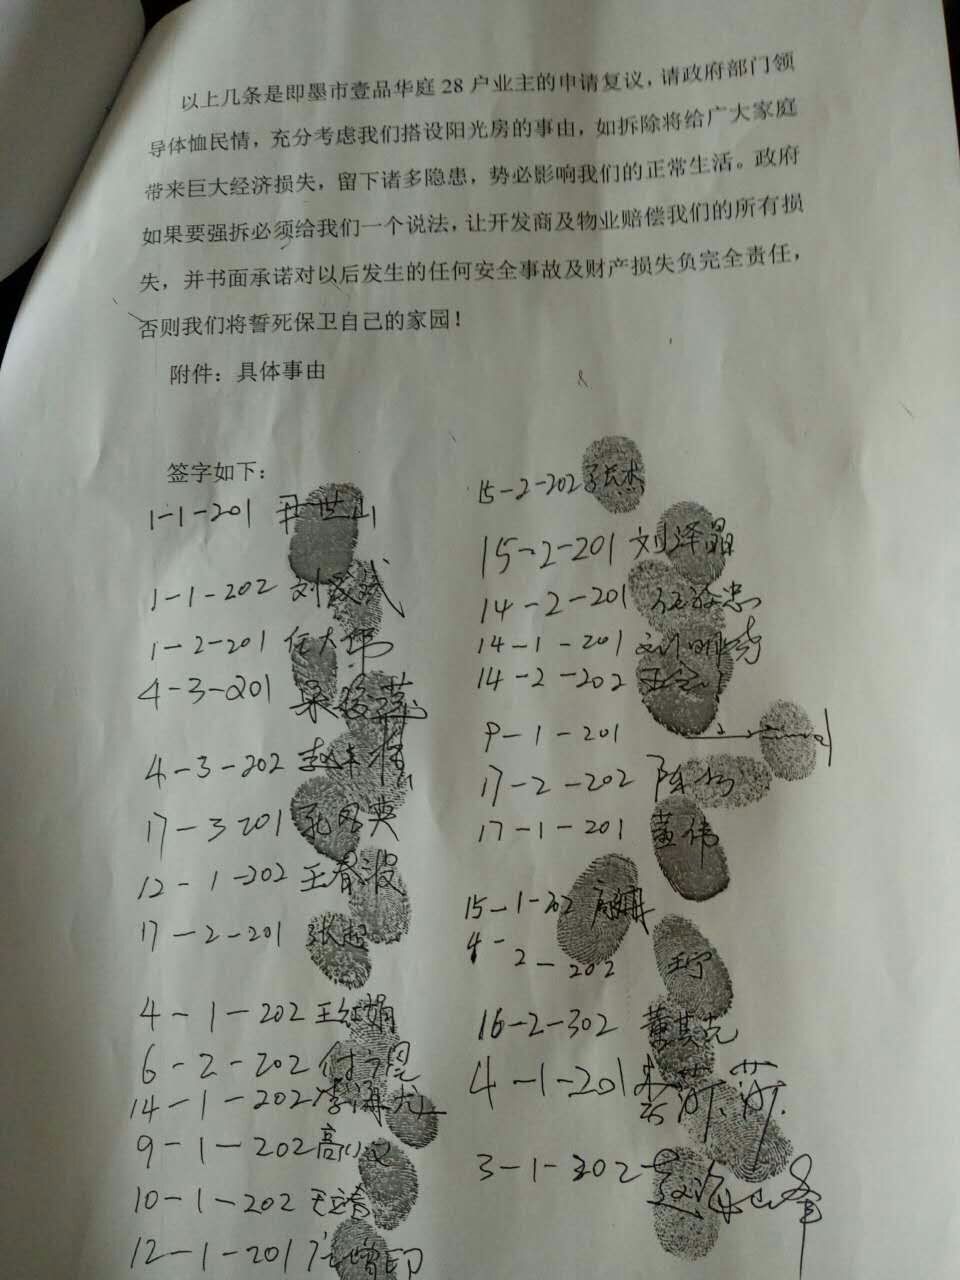 以上几条是即墨市壹品华庭 28 户业主的申请复议，请政府部门领
导体恤民情，充分考虑我们搭设阳光房的事由，如拆除将给广大家庭
带来巨大经济损失，留下诸多隐患，势必影响我们的正常生活。政府
如果要强拆必须给我们一个说法，让开发商及物业赔偿我们的所有损
失，并书面承诺对以后发生的任何安全事故及财产损失负完全责任，
否则我们将誓死保卫自己的家园！
附件：具体事由
签字如下：
1-1-201
1-1-202
1-2-201 任大伟
4-3-201
4-3-202
17-3201
12-1-202 王春波
17-2-201 张超
4-1-202 王红娟
6-2-202
14-1-202 李海龙
9-1-202
10-1-202
12-1-201
15-2-202
15-2-201 刘泽晶
14-2-201
14-1-201
14-2-202
9-1-201
17-2-202
17-1-201 董伟
15-1-202
4-2-202 王宁
16-2-302 董其克
4-1-201
3-1-302